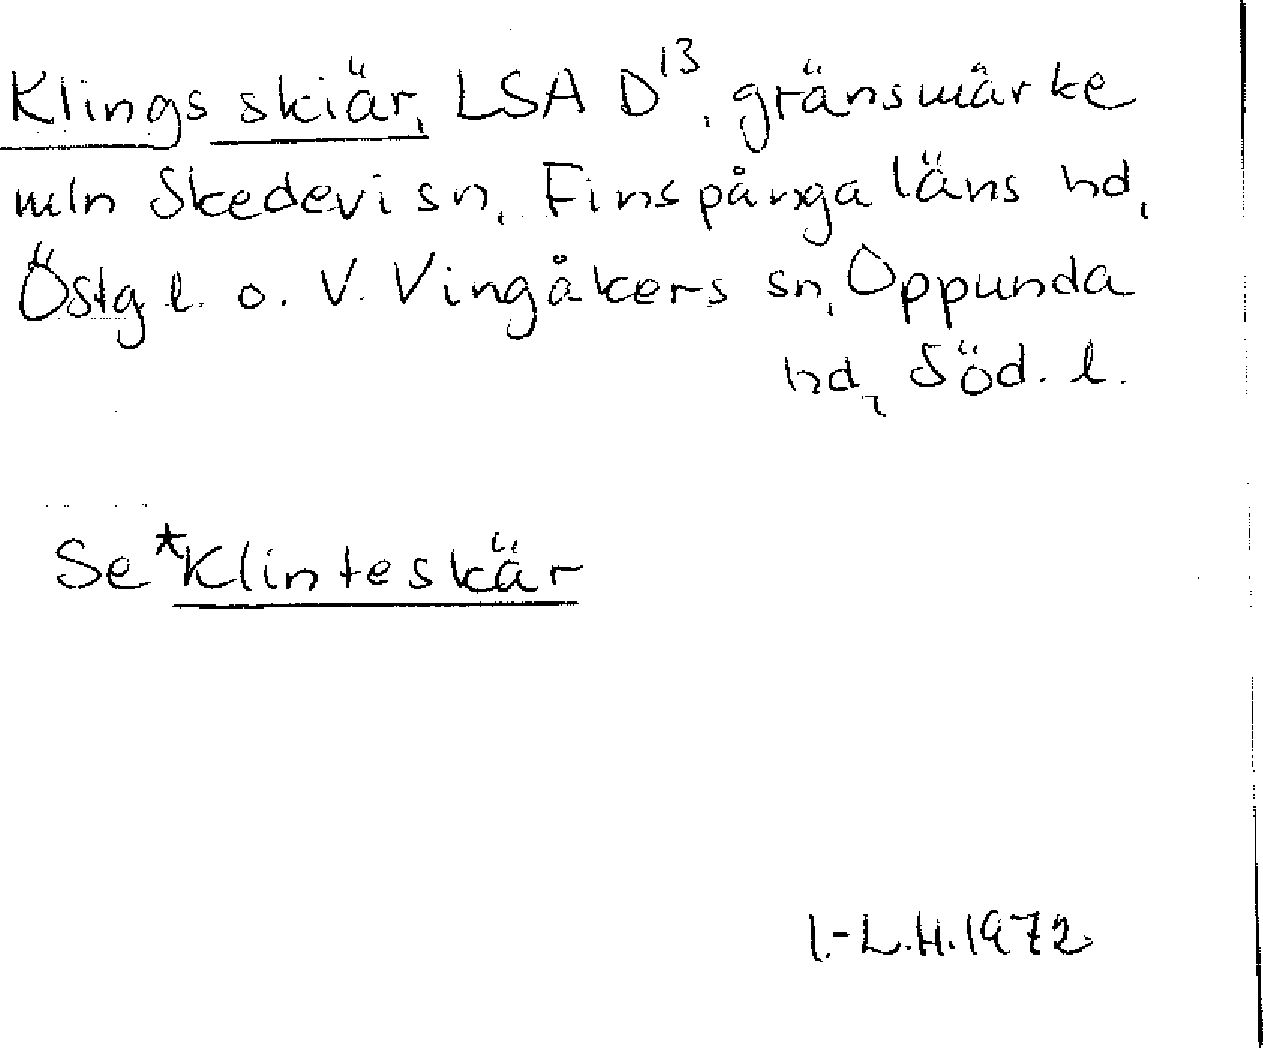 Klings skiär, LSA D¹³, gränsmärke
mln Skedevi sn, Finspånga läns hd,
Östg l. o. V. Vingåkers sn, Oppunda
hd, Söd. l.
Se *Klinteskär
I.-L.H. 1972